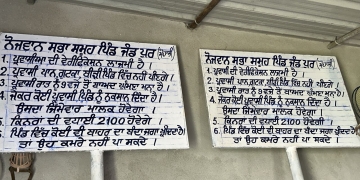 ਨੌਜਵਾਨ ਸਭਾ ਸਮੂਹ ਪਿੰਡ ਜੰਡ ਪੁਰ
1. ਪ੍ਰਵਾਸੀਆ ਦੀ ਵੇਰੀਫਿਕੇਸ਼ਨ ਲਾਜਮੀ ਹੈ।
2. ਪ੍ਰਵਾਸੀ ਪਾਨ, ਗੁਟਕਾ, ਬੀੜੀ ਪਿੰਡ ਵਿੱਚ ਨਹੀ ਪੀਣਗੇ।
3. ਪ੍ਰਵਾਸੀ ਰਾਤ ਨੂੰ 9 ਵਜੇ ਤੋਂ ਬਾਹਰ ਘੁੰਮਣਾ ਮਨ੍ਹਾ ਹੈ।
4. ਜੇਕਰ ਕੋਈ ਪ੍ਰਵਾਸੀ ਪਿੰਡ ਨੂੰ ਨੁਕਸਾਨ ਦਿੰਦਾ ਹੈ।
ਉਸਦਾ ਜਿੰਮੇਵਾਰ ਮਾਲਕ ਹੋਵੇਗਾ।
5. ਕਿਨਰਾਂ ਦੀ ਵਧਾਈ 2100 ਹੋਵੇਗੀ।
6. ਪਿੰਡ ਵਿੱਚ ਕੋਈ ਵੀ ਬਾਹਰ ਦਾ ਬੰਦਾ ਜਗਾ ਖ੍ਰੀਦਦਾ ਹੈ।
ਤਾਂ ਉਹ ਕਮਰੇ ਨਹੀ ਪਾ ਸਕਦੇ।
ਨੌਜਵਾਨ ਸਭਾ ਸਮੂਹ ਪਿੰਡ ਜੰਡ ਪੁਰ
1. ਪ੍ਰਵਾਸੀਆ ਦੀ ਵੇਰੀਫਿਕੇਸ਼ਨ ਲਾਜਮੀ ਹੈ।
2. ਪ੍ਰਵਾਸੀ ਪਾਨ, ਗੁਟਕਾ, ਬੀੜੀ ਪਿੰਡ ਵਿੱਚ ਨਹੀ ਪੀਣਗੇ।
3. ਪ੍ਰਵਾਸੀ ਰਾਤ ਨੂੰ 9 ਵਜੇ ਤੋਂ ਬਾਹਰ ਘੁੰਮਣਾ ਮਨ੍ਹਾ ਹੈ।
4. ਜੇਕਰ ਕੋਈ ਪ੍ਰਵਾਸੀ ਪਿੰਡ ਨੂੰ ਨੁਕਸਾਨ ਦਿੰਦਾ ਹੈ।
ਉਸਦਾ ਜਿੰਮੇਵਾਰ ਮਾਲਕ ਹੋਵੇਗਾ।
5. ਕਿਨਰਾਂ ਦੀ ਵਧਾਈ 2100 ਹੋਵੇਗੀ।
6. ਪਿੰਡ ਵਿੱਚ ਕੋਈ ਵੀ ਬਾਹਰ ਦਾ ਬੰਦਾ ਜਗਾ ਖ੍ਰੀਦਦਾ ਹੈ।
ਤਾਂ ਉਹ ਕਮਰੇ ਨਹੀ ਪਾ ਸਕਦੇ।